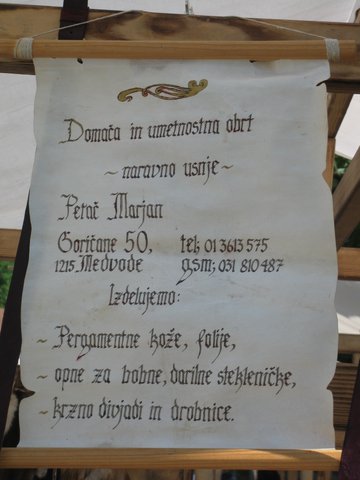 Domača in umetnostna obrt
~ naravno usnje ~
Petač Marjan
Goričane 50, tel: 01 3613 575
1215 Medvode gsm: 031 810 487
Izdelujemo:
~ Pergamentne kože, folije,
~ opne za bobne, darilne stekleničke,
~ krzno divjadi in drobnice.